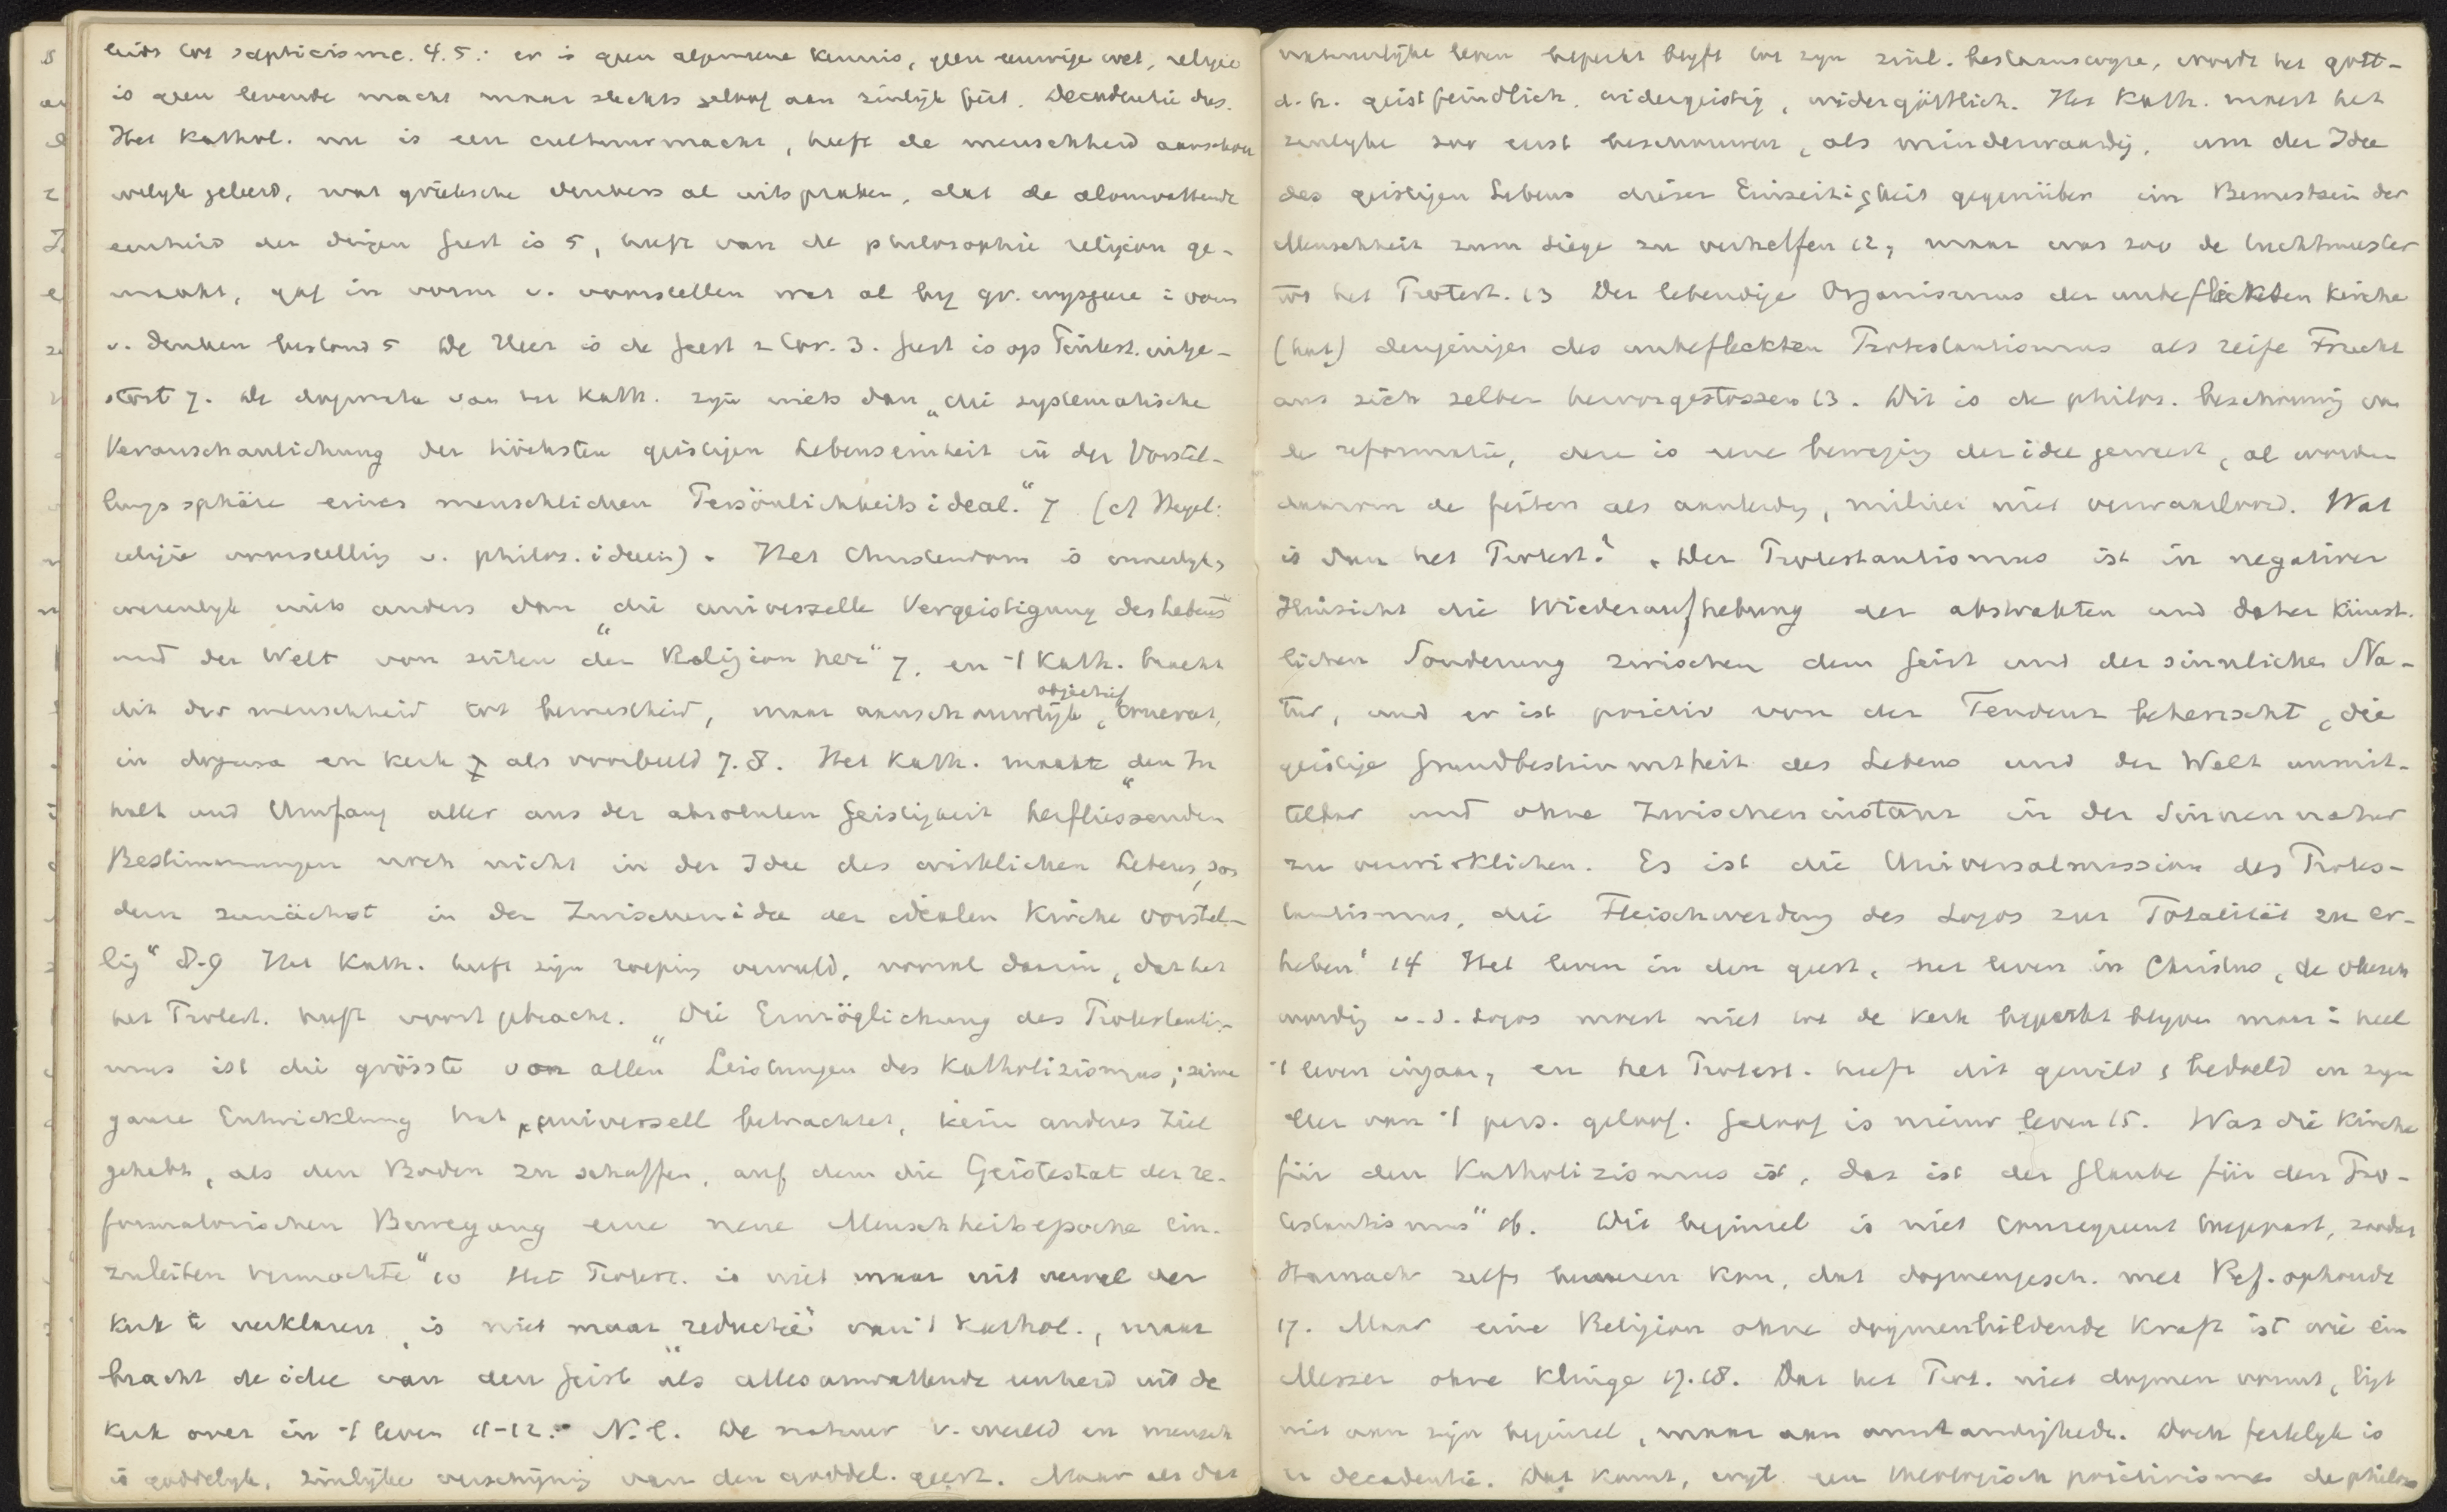 leidt tot scepticisme. 4.5: er is geen algemeene kennis, geen eeuwige wet, religie
is geen levende macht maar slechts geloof aan zinlijk feit. Decadentie dus.
Het Kathol. nu is een cultuurmacht, heeft de menschheid aanschou
welyk geleerd, wat grieksche denkers al uitspraken, dat de alomvattende
eenheid der dingen geest is 5, heeft van de philosophie religion ge-
maakt, gaf in vorm v. voorstellen wat al by gr. wysgeer i vorm
v. denken bestond 5 De Heer is de geest 2 Cor. 3. Geest is op Pinkst. uitge-
stort 7. De dogmata van het Kath. zyn niets dan „die systematische
Veranschaulichung der höchsten geistigen Lebenseinheit in der Vorstel-
lungssphäre eines menschlichen Persönlichkeitsideal.“ 7 (cf Hegel:
religie voorstelling v. philos. ideeën). Het Christendom is innerlyk,
wezenlyk niets anders dan „die universelle Vergeistigung des Lebens
und der Welt von seiten der Religion her“ 7. en 't Kath. bracht
dit der menschheid tot bewustheid, maar aanschouwlyk, objectief concreet,
in dogma en kerk als voorbeeld 7.8. Het Kath. maakte „den In
halt und Umfang aller aus der absoluten Geistigkeit herfliessenden
Bestimmungen noch nicht in der Idee des wirklichen Lebens, son
dern zunächst in der Zwischenidee der idealen Kirche vorstel-
lig“ 8-9 Het Kath. heeft zijn roeping vervuld, vooral daarin, dat het
het Protest. heeft voortgebracht. „Die Ermöglichung des Protestantis-
mus ist die grösste von allen Leistungen des Katholizismus; seine
ganze Entwicklung hat, universell betrachtet, kein anderes Ziel
gehabt, als den Boden zu schaffen, auf dem die Geistestat der re-
formatorischen Bewegung eine neue Menschheitsepoche ein-
zuleiten vermochte“ 10 Het Protest. is niet maar uit verval der
kerk te verklaren, is niet maar „reductie“ van 't Kathol., maar
bracht de idee van den Geist als allesomvattende eenheid uit de
kerk over in 't leven 11-12. N.l. De natuur v. wereld en mensch
is goddelyk, zinlyke verschyning van den goddel. geest. Maar als dat
natuurlyke leven beperkt blyft tot zyn zinl. bestaanswyze, wordt het gott-
d.h. geistfeindlich, widergeistig, widergöttlich. Het Kath. moest het
zinlyke zoo eerst beschouwen, als minderwaardig, um der Idee
des geistigen Lebens dieser Einseitigkeit gegenüber im Bewustsein der
Menschheit zum Siege zu verhelfen 12, maar was zoo de tuchtmeester
tot het Protest. 13 Der lebendige Organismus der unbefleckten Kirche
(hat) denjenigen des unbefleckten Protestantismus als reife Frucht
aus sich selber hervorgestossen 13. Dit is de philos. beschouwing van
de reformatie, deze is eene beweging der idee geweest, al worden
daarom de feiten als aanleiding, milieu niet verwaarloosd. Wat
is dan het Protest.? „Der Protestantismus ist in negativer
Hinsicht die Wiederaufhebung der abstrakten und daher künst-
lichen Sonderung zwischen dem Geist und der sinnlichen Na-
tur, und er ist positiv von der Tendenz beherrscht, die
geistige Grundbestimmtheit des Lebens und der Welt unmit-
telbar und ohne Zwischeninstanz in der Sinnennatur
zu verwirklichen. Es ist die Universalmission des Protes-
tantismus, die Fleischwerdung des Logos zur Totalität zu er-
heben“ 14 Het leven in den geest, het leven in Christus, de vleesch
wording v.d. Logos moest niet tot de kerk beperkt blyven maar i heel
't leven ingaan, en het Protest. heeft dit gewild & bedoeld in zyn
eller van 't pers. geloof. Geloof is nieuw leven 15. Was die Kirche
für den Katholizismus ist, das ist der Glaube für den Pro-
testantismus“ 16. Dit beginsel is niet consequent toegepast, zoodat
Harnack zelfs beweren kon, dat dogmengesch. met Ref. ophoudt
17. Maar eine Religion ohne dogmenbildende Kraft ist wie ein
Messer ohne Klinge 17.18. Dat het Prot. niet dogmen vormt, ligt
niet aan zijn beginsel, maar aan omstandigheden. Doch feitelyk is
er decadentie. Dat komt, wyl een theologisch positivisme de philos